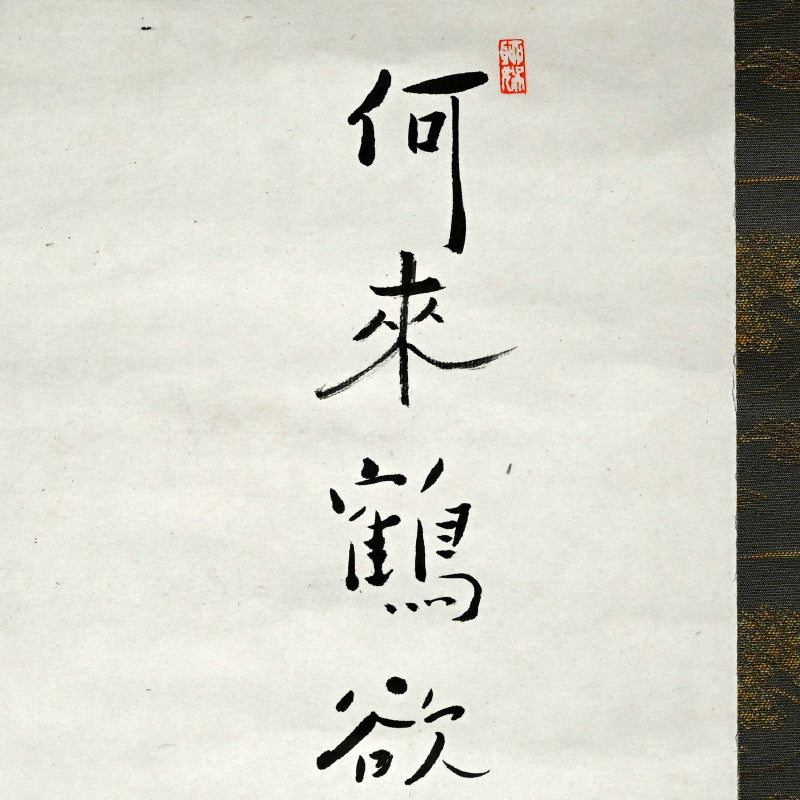 何來鶴欲